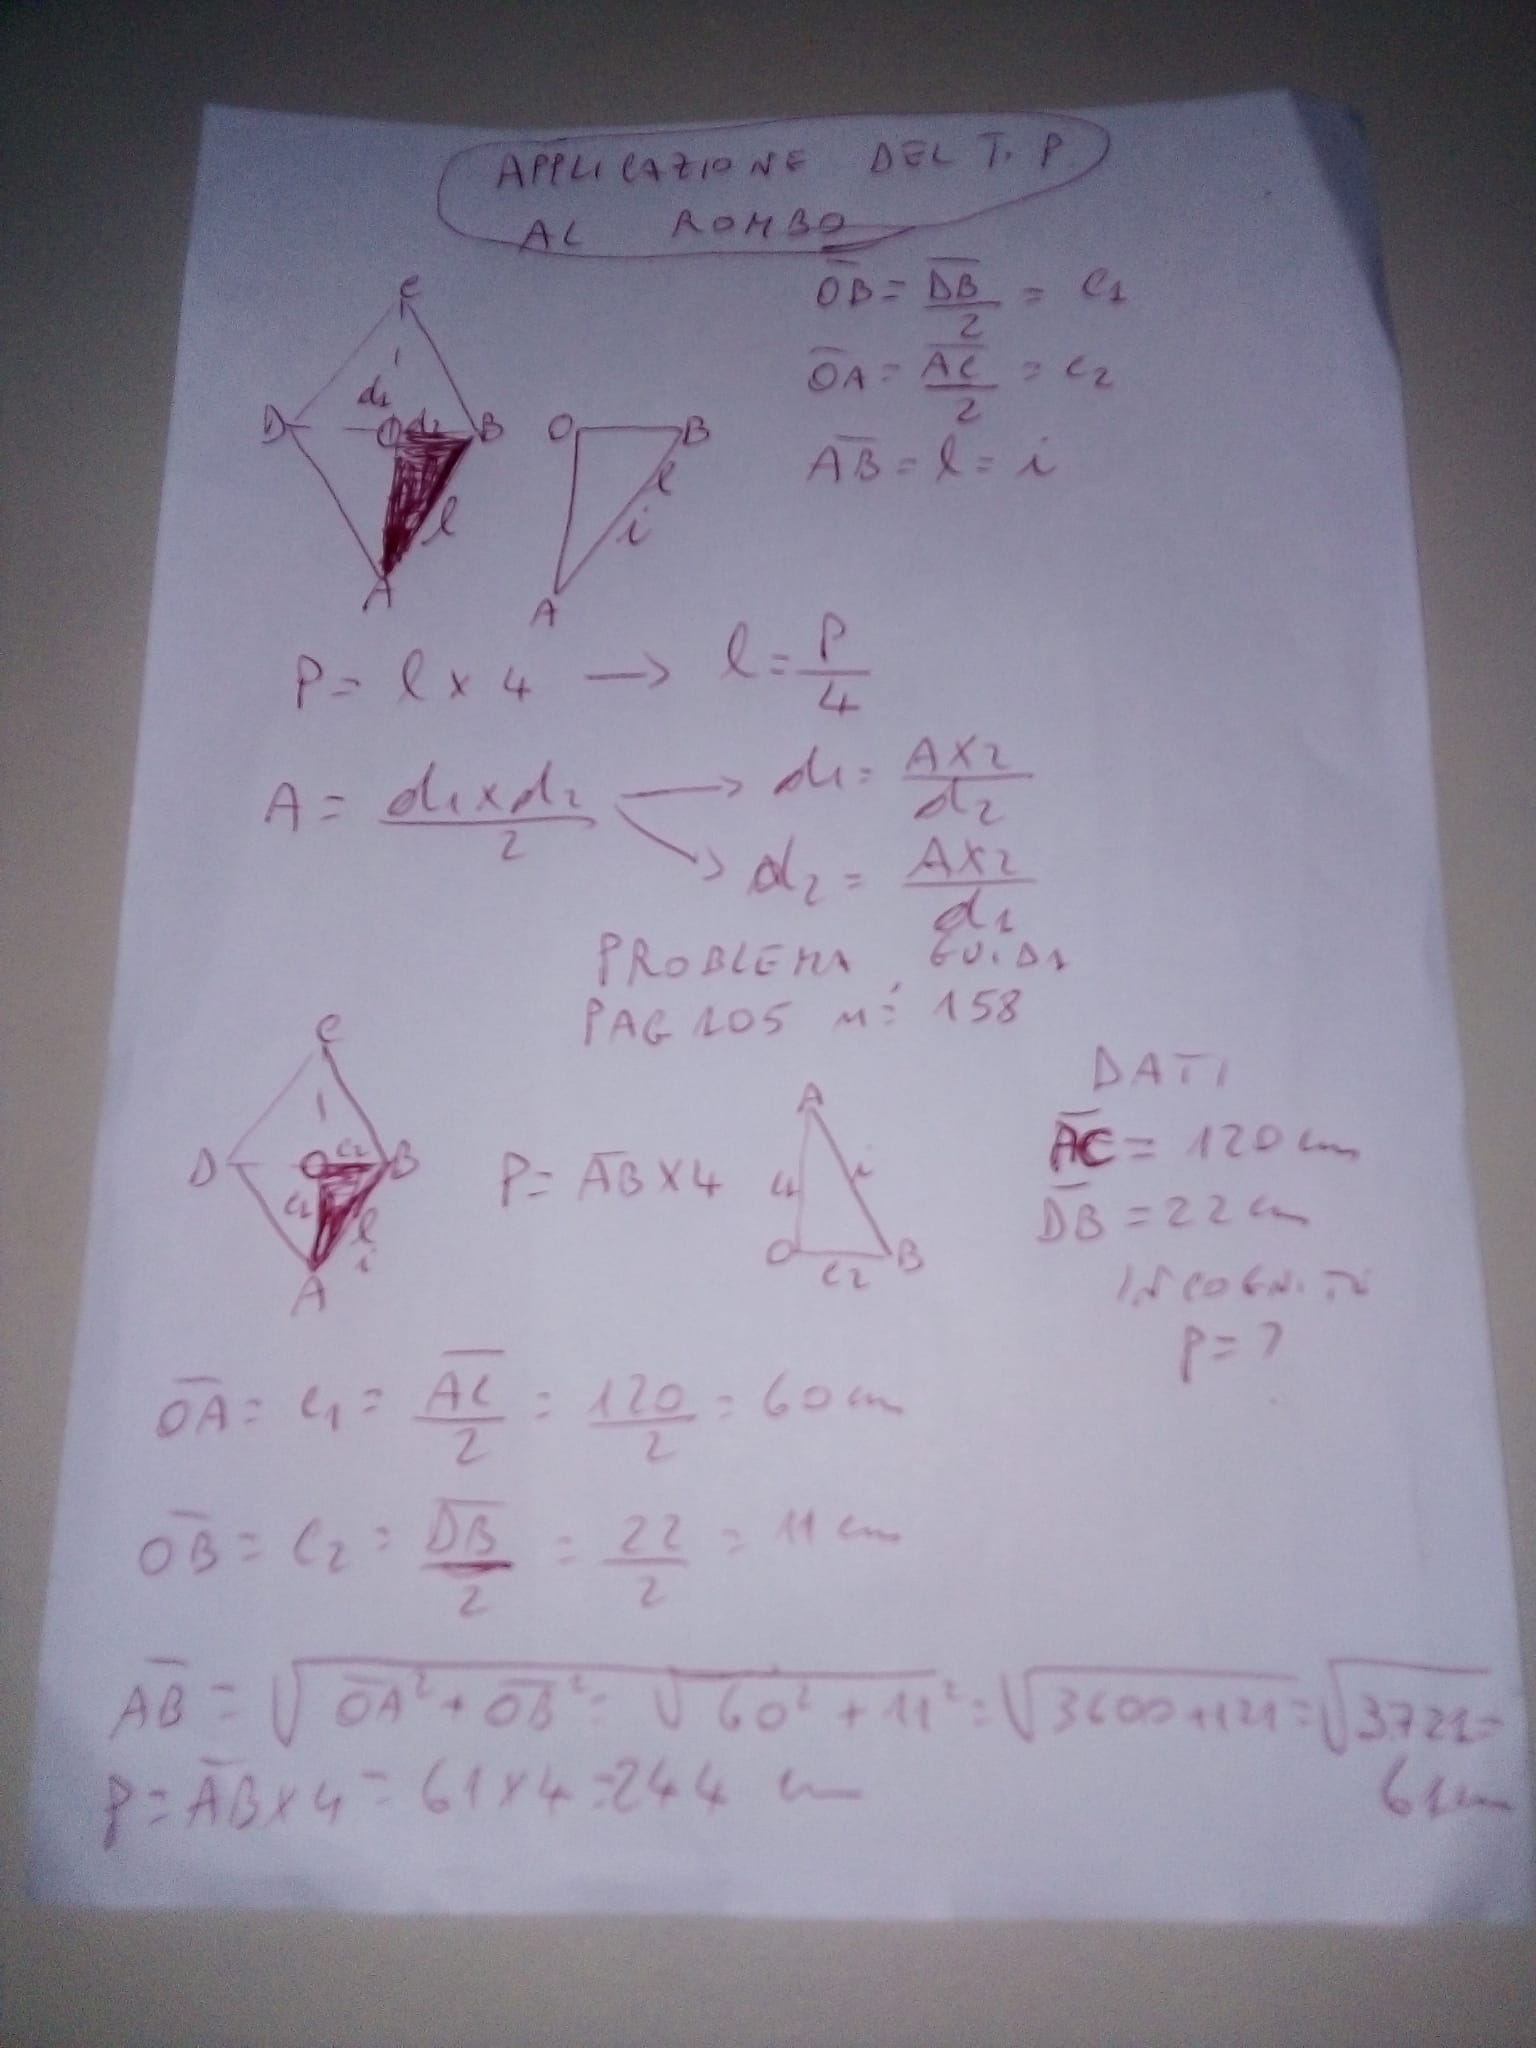 APPLICAZIONE DEL T. P
AL ROMBO
OB = DB/2 = C1
OA = AC/2 = C2
AB = l = i
C
d1
D O d2 B
l
A
O B
l
i
A
P = l x 4 → l = P/4
A = d1 x d2 / 2 → d1 = A x 2 / d2
→ d2 = A x 2 / d1
PROBLEMA GUIDA
PAG 105 n° 158
C
D O C2 B
l
i
A
P = AB x 4
A
i
O C2 B
DATI
AC = 120 cm
DB = 22 cm
INCOGNITA
P = ?
OA = C1 = AC/2 = 120/2 = 60 cm
OB = C2 = DB/2 = 22/2 = 11 cm
AB = √OA² + OB² = √60² + 11² = √3600+121 = √3721 =
61 cm
P = AB x 4 = 61 x 4 = 244 cm